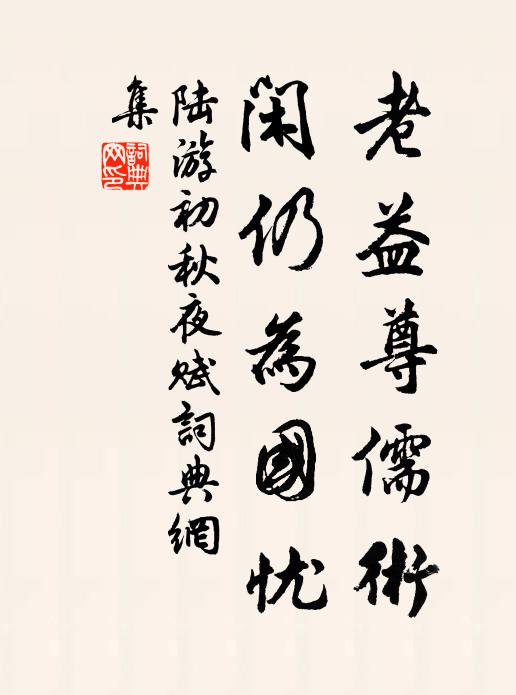 老益尊儒術
閑仍為國忧
陆游初秋夜赋詞典網
集
詞典
网印